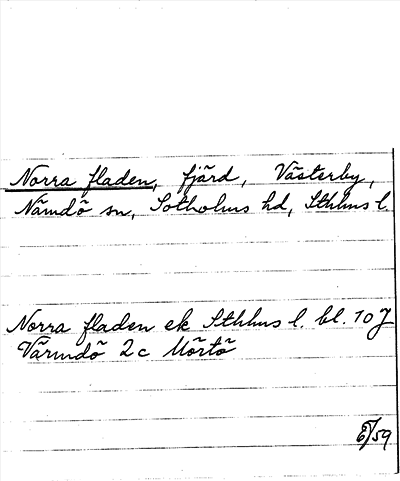 Norra fladen, fjärd, Västerby,
Nämdö sn, Sotholms hd, Sthlms l.
Norra fladen ek Sthlms l. bl. 10 J
Värmdö 2c Mörtö
E/59